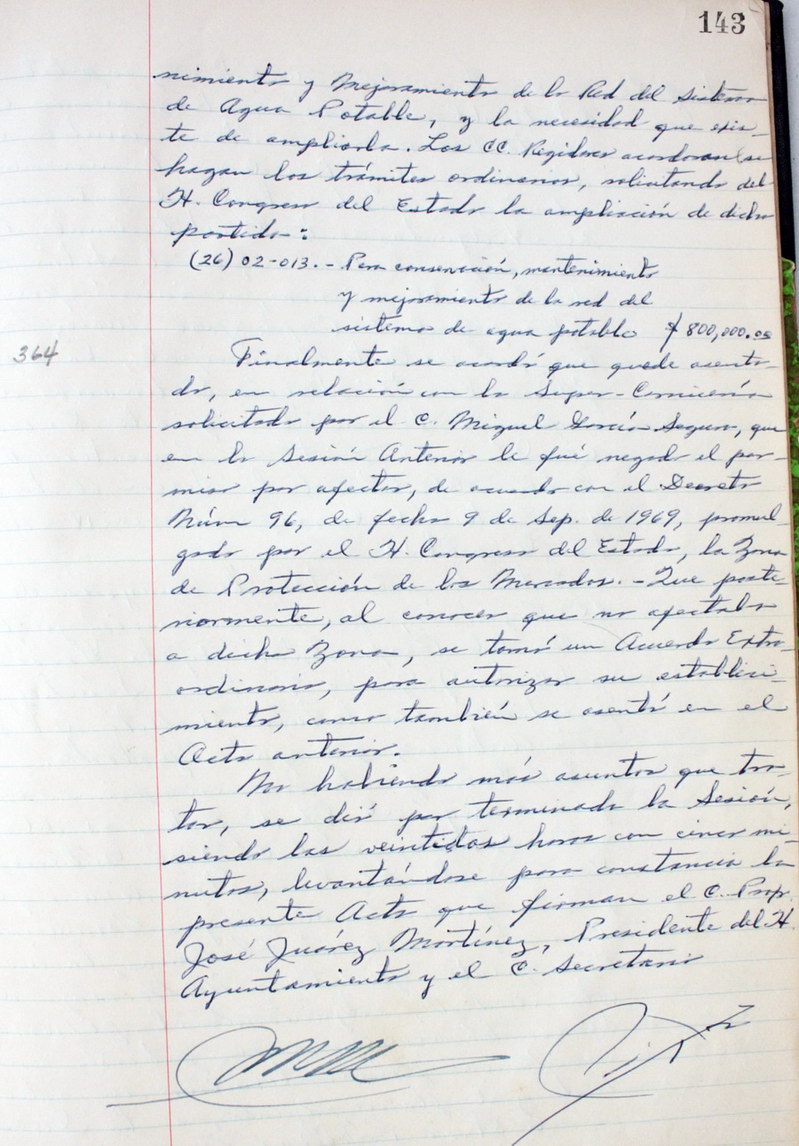 143
nimiento y Mejoramiento de la Red del Sistema
de Agua Potable, y la necesidad que exis-
te de ampliarla. Los CC. Regidores acordaron se
hagan los trámites ordinarios, solicitando del
H. Congreso del Estado la ampliación de dicha
partida:
(26) 02-013.- Para conservación, mantenimiento
y mejoramiento de la red del
sistema de agua potable $ 800,000.00
364
Finalmente se acordó que quede asenta-
do, en relación con la Super-Carnicería
solicitada por el C. Miguel García Segura, que
en la Sesión Anterior le fué negado el per-
miso por afectar, de acuerdo con el Decreto
Núm 96, de fecha 9 de Sep. de 1969, promul
gado por el H. Congreso del Estado, la Zona
de Protección de los Mercados.- Que poste-
riormente, al conocer que no afectaba
a dicha Zona, se tomó un Acuerdo Extra-
ordinario, para autorizar su estableci-
miento, como también se asentó en el
Acta anterior.
No habiendo más asuntos que tra-
tar, se dió por terminada la Sesión,
siendo las veintidas horas con cinco mi-
nutos, levantándose para constancia la
presente Acta que firman el C. Prof.
José Juárez Martínez, Presidente del H.
Ayuntamiento y el C. Secretario